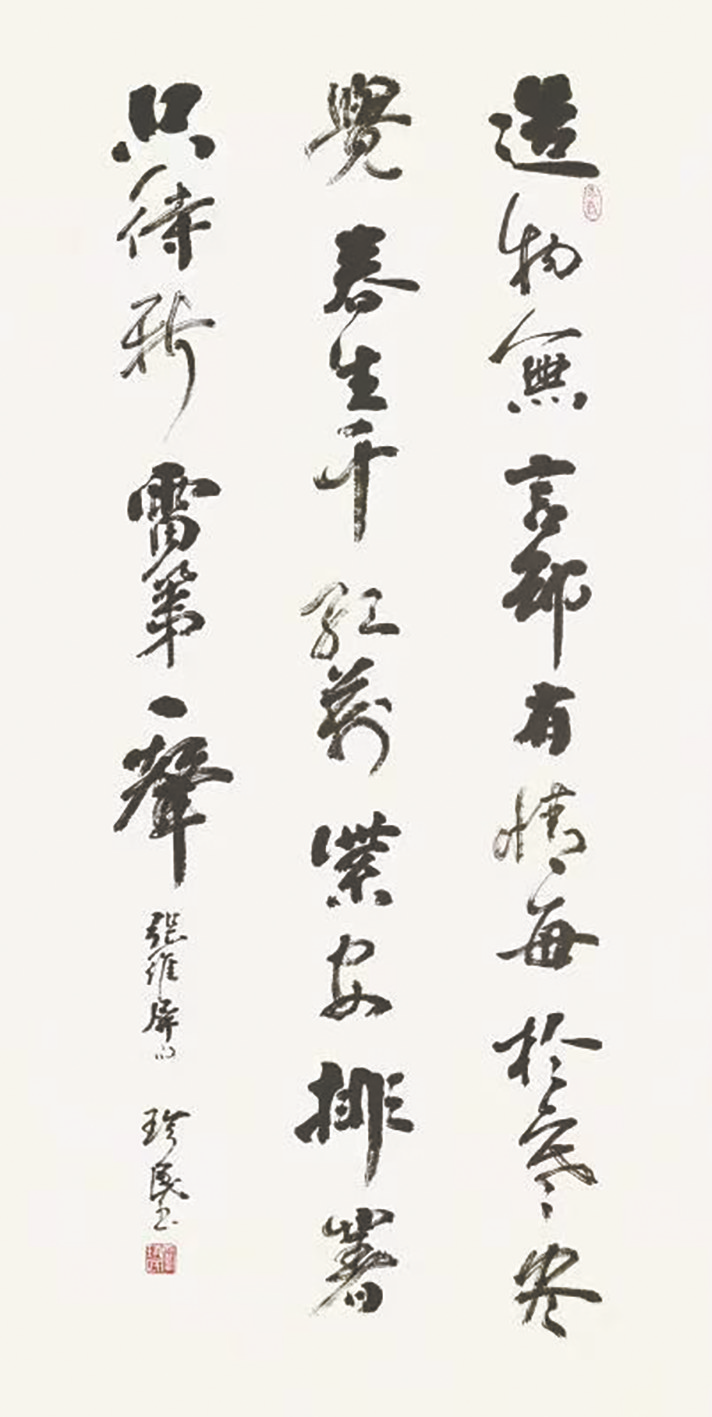 造物無言却有情每於寒尽
覺春生千紅萬紫安排著
只待新雷第一聲 張維屏 珍民书